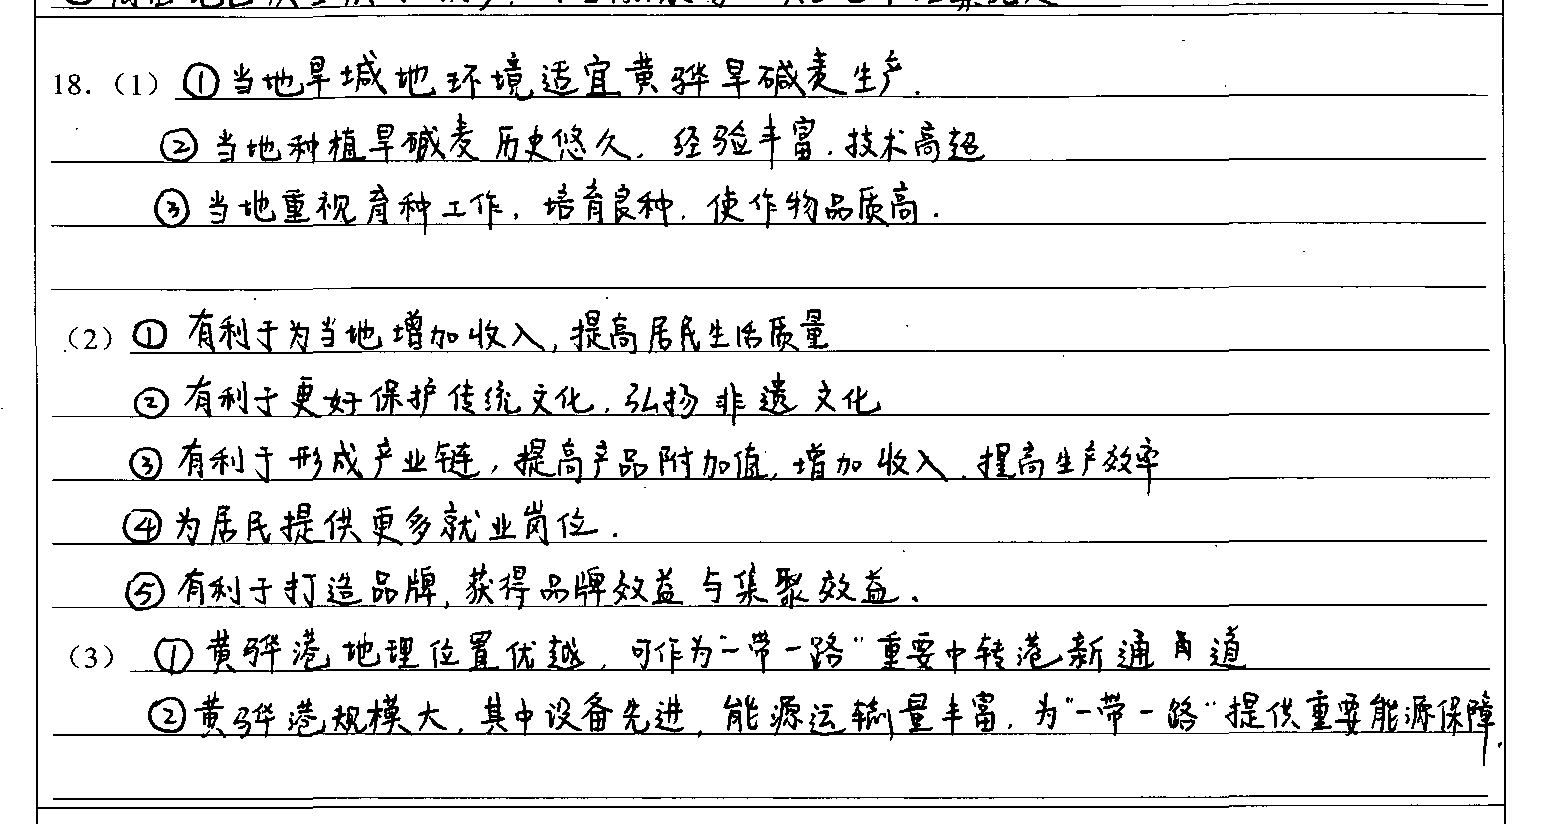 18.（1）①当地旱碱地环境适宜黄骅旱碱麦生产.
②当地种植旱碱麦历史悠久，经验丰富，技术高超
③当地重视育种工作，培育良种，使作物品质高.
（2）①有利于为当地增加收入，提高居民生活质量
②有利于更好保护传统文化，弘扬非遗文化
③有利于形成产业链，提高产品附加值，增加收入，提高生产效率
④为居民提供更多就业岗位.
⑤有利于打造品牌，获得品牌效益与集聚效益.
（3）①黄骅港地理位置优越，可作为“一带一路”重要中转港新通道
②黄骅港规模大，其中设备先进，能源运输量丰富，为“一带一路”提供重要能源保障.